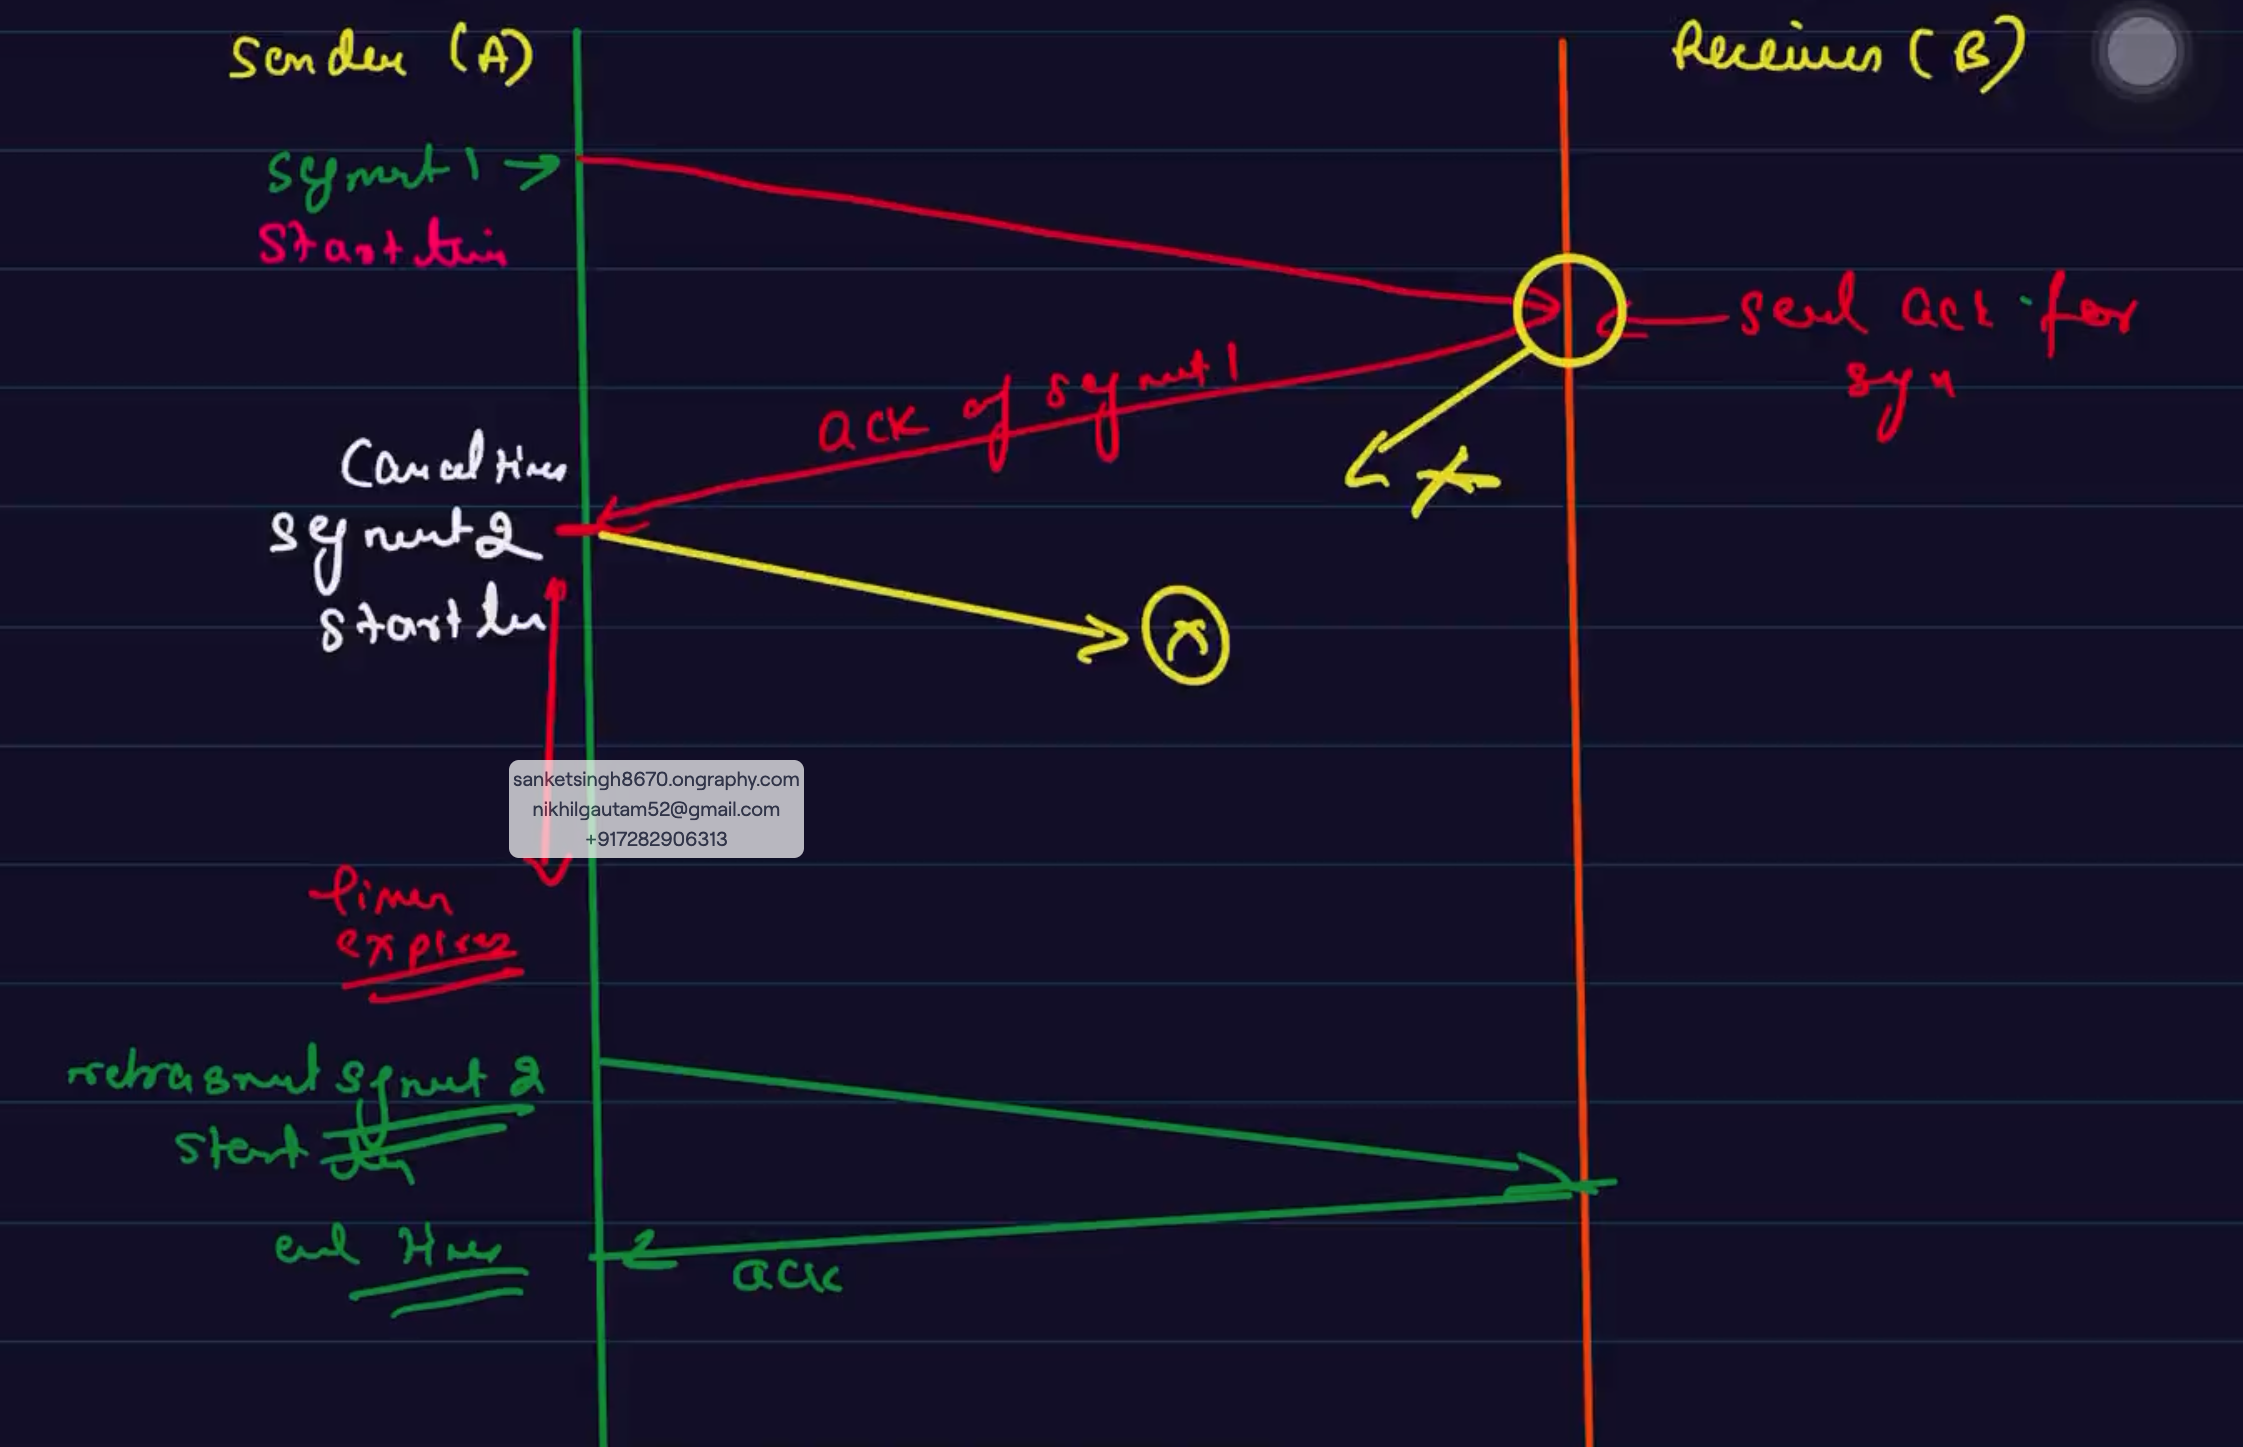 Sender (A)
Receiver (B)
Segment 1 →
Start timer
Send ack for
seg 1
ack of segment 1
Cancel timer
Segment 2
Start timer
sanketsingh8670.ongraphy.com
nikhilgautam52@gmail.com
+917282906313
timer
expires
retransmit segment 2
start timer
end timer
ack